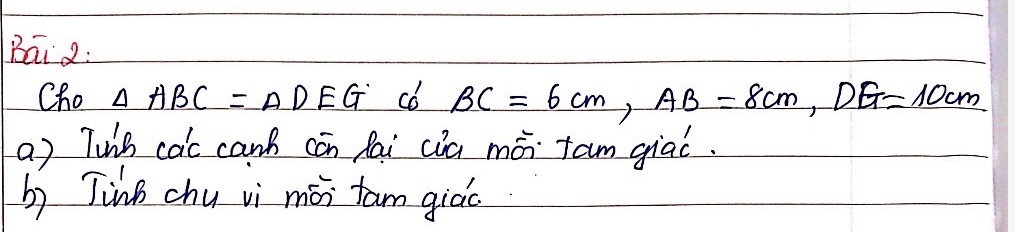 Bài 2:
Cho Δ ABC = Δ DEG có BC = 6 cm, AB = 8cm, DG = 10cm
a) Tính các cạnh còn lại của mỗi tam giác.
b) Tính chu vi mỗi tam giác.